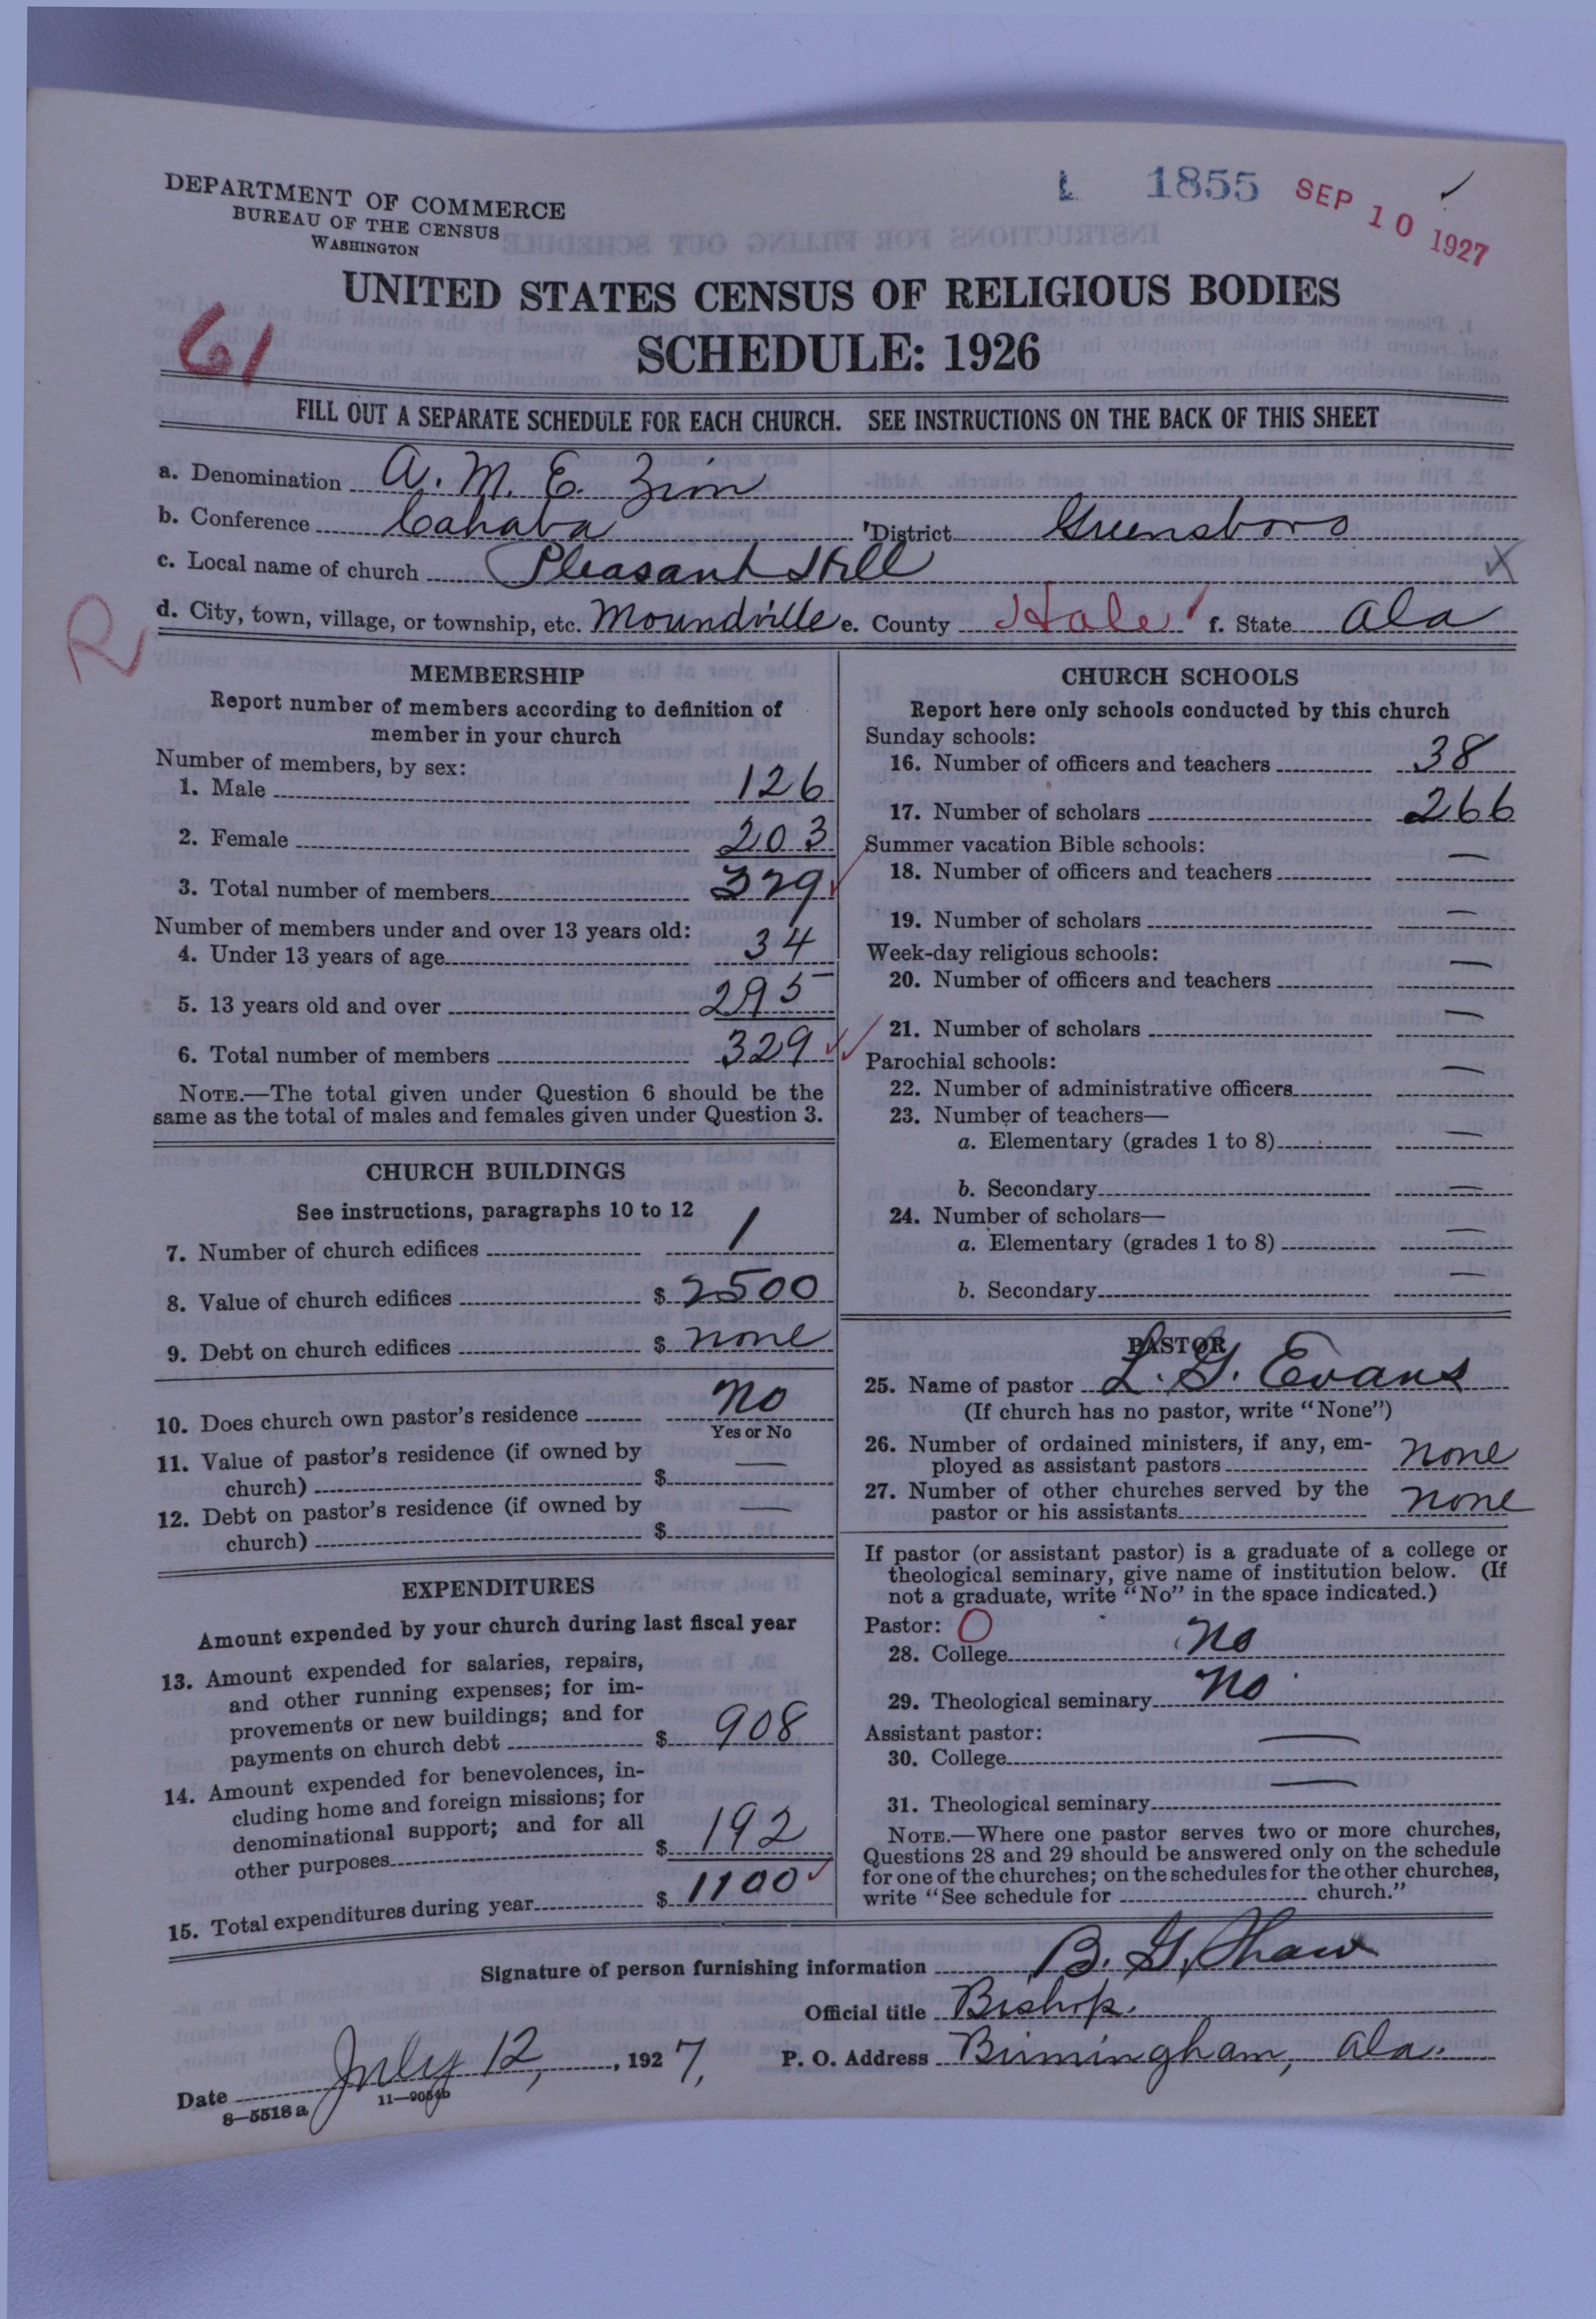 DEPARTMENT OF COMMERCE
BUREAU OF THE CENSUS
WASHINGTON
1855
SEP 10 1927
UNITED STATES CENSUS OF RELIGIOUS BODIES
61
SCHEDULE: 1926
FILL OUT A SEPARATE SCHEDULE FOR EACH CHURCH. SEE INSTRUCTIONS ON THE BACK OF THIS SHEET
a. Denomination A. M. E. Zion
b. Conference Cahaba District Greensboro
c. Local name of church Pleasant Hill
R
d. City, town, village, or township, etc. Moundville e. County Hale f. State Ala
MEMBERSHIP
Report number of members according to definition of
member in your church
Number of members, by sex:
1. Male 126
2. Female 203
3. Total number of members 329
Number of members under and over 13 years old:
4. Under 13 years of age 34
5. 13 years old and over 295
6. Total number of members 329
NOTE.—The total given under Question 6 should be the
same as the total of males and females given under Question 3.
CHURCH BUILDINGS
See instructions, paragraphs 10 to 12
7. Number of church edifices 1
8. Value of church edifices $ 2500
9. Debt on church edifices $ none
10. Does church own pastor's residence No
Yes or No
11. Value of pastor's residence (if owned by
church) $ —
12. Debt on pastor's residence (if owned by
church) $ —
EXPENDITURES
Amount expended by your church during last fiscal year
13. Amount expended for salaries, repairs,
and other running expenses; for im-
provements or new buildings; and for
payments on church debt $ 908
14. Amount expended for benevolences, in-
cluding home and foreign missions; for
denominational support; and for all
other purposes $ 192
15. Total expenditures during year $ 1100
CHURCH SCHOOLS
Report here only schools conducted by this church
Sunday schools:
16. Number of officers and teachers 38
17. Number of scholars 266
Summer vacation Bible schools:
18. Number of officers and teachers —
19. Number of scholars —
Week-day religious schools:
20. Number of officers and teachers —
21. Number of scholars —
Parochial schools:
22. Number of administrative officers —
23. Number of teachers—
a. Elementary (grades 1 to 8) —
b. Secondary —
24. Number of scholars—
a. Elementary (grades 1 to 8) —
b. Secondary —
PASTOR
25. Name of pastor L. G. Evans
(If church has no pastor, write "None")
26. Number of ordained ministers, if any, em-
ployed as assistant pastors none
27. Number of other churches served by the
pastor or his assistants none
If pastor (or assistant pastor) is a graduate of a college or
theological seminary, give name of institution below. (If
not a graduate, write "No" in the space indicated.)
Pastor: O
28. College No
29. Theological seminary No
Assistant pastor:
30. College —
31. Theological seminary —
NOTE.—Where one pastor serves two or more churches,
Questions 28 and 29 should be answered only on the schedule
for one of the churches; on the schedules for the other churches,
write "See schedule for church."
Signature of person furnishing information B. G. Shaw
Official title Bishop.
Date July 12, 1927, P. O. Address Birmingham, Ala.
8—5518 a 11—9054b